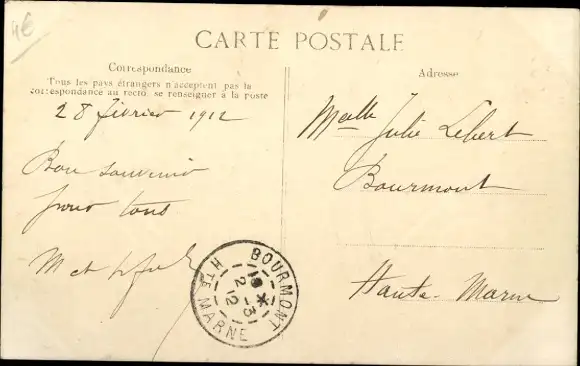 4€
CARTE POSTALE
Correspondance
Tous les pays étrangers n'acceptent pas la
correspondance au recto, se renseigner à la poste
Adresse
28 février 1912
Bon souvenir
pour tous
M et
Melle Julie Lebert
Bourmont
Haute-Marne
BOURMONT
2 -3
12
HTE MARNE